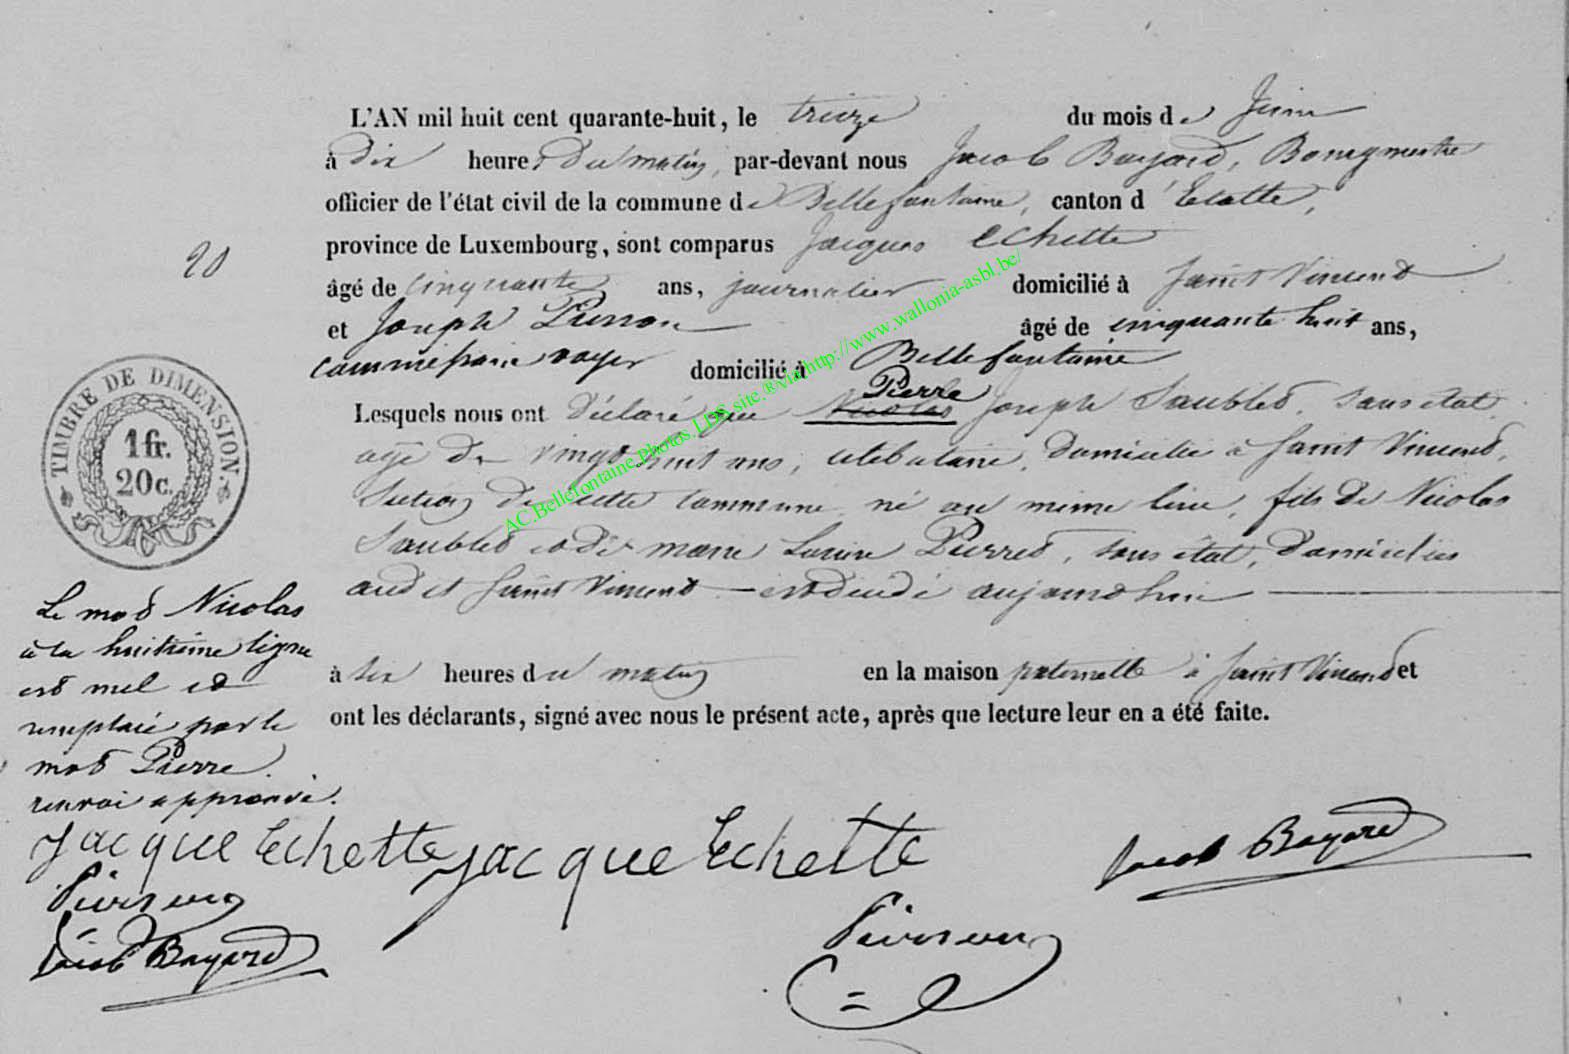 L'AN mil huit cent quarante-huit, le treize du mois de Juin
à dix heures du matin, par-devant nous Jacob Bayard, Bourgmestre
officier de l'état civil de la commune de Bellefontaine, canton d'Etalle,
province de Luxembourg, sont comparus Jacques Echette
20
âgé de cinquante ans, journalier domicilié à Saint Vincent
et Joseph Pierson âgé de cinquante huit ans,
commissaire voyer domicilié à Bellefontaine
Pierre
Lesquels nous ont déclaré que Nicolas Joseph Saublet, sans état
âgé de vingt huit ans, célibataire, domicilié à Saint Vincent,
section de cette commune, né au même lieu, fils de Nicolas
Saublet et de marie Pierret, sans état, domiciliés
audit Saint Vincent — est décédé aujourd'hui —
à six heures du matin en la maison paternelle à Saint Vincent et
ont les déclarants, signé avec nous le présent acte, après que lecture leur en a été faite.
TIMBRE DE DIMENSION.
1 fr.
20 c.
Le mot Nicolas
à la huitième ligne
est nul et
remplacé par le
mot Pierre.
renvoi approuvé.
Jacque Echette Jacque Echette
Jacob Bayard
Pierson
Pierson
Jacob Bayard
AC.Bellefontaine.Photos.LDS site.® via http://www.wallonia-asbl.be/